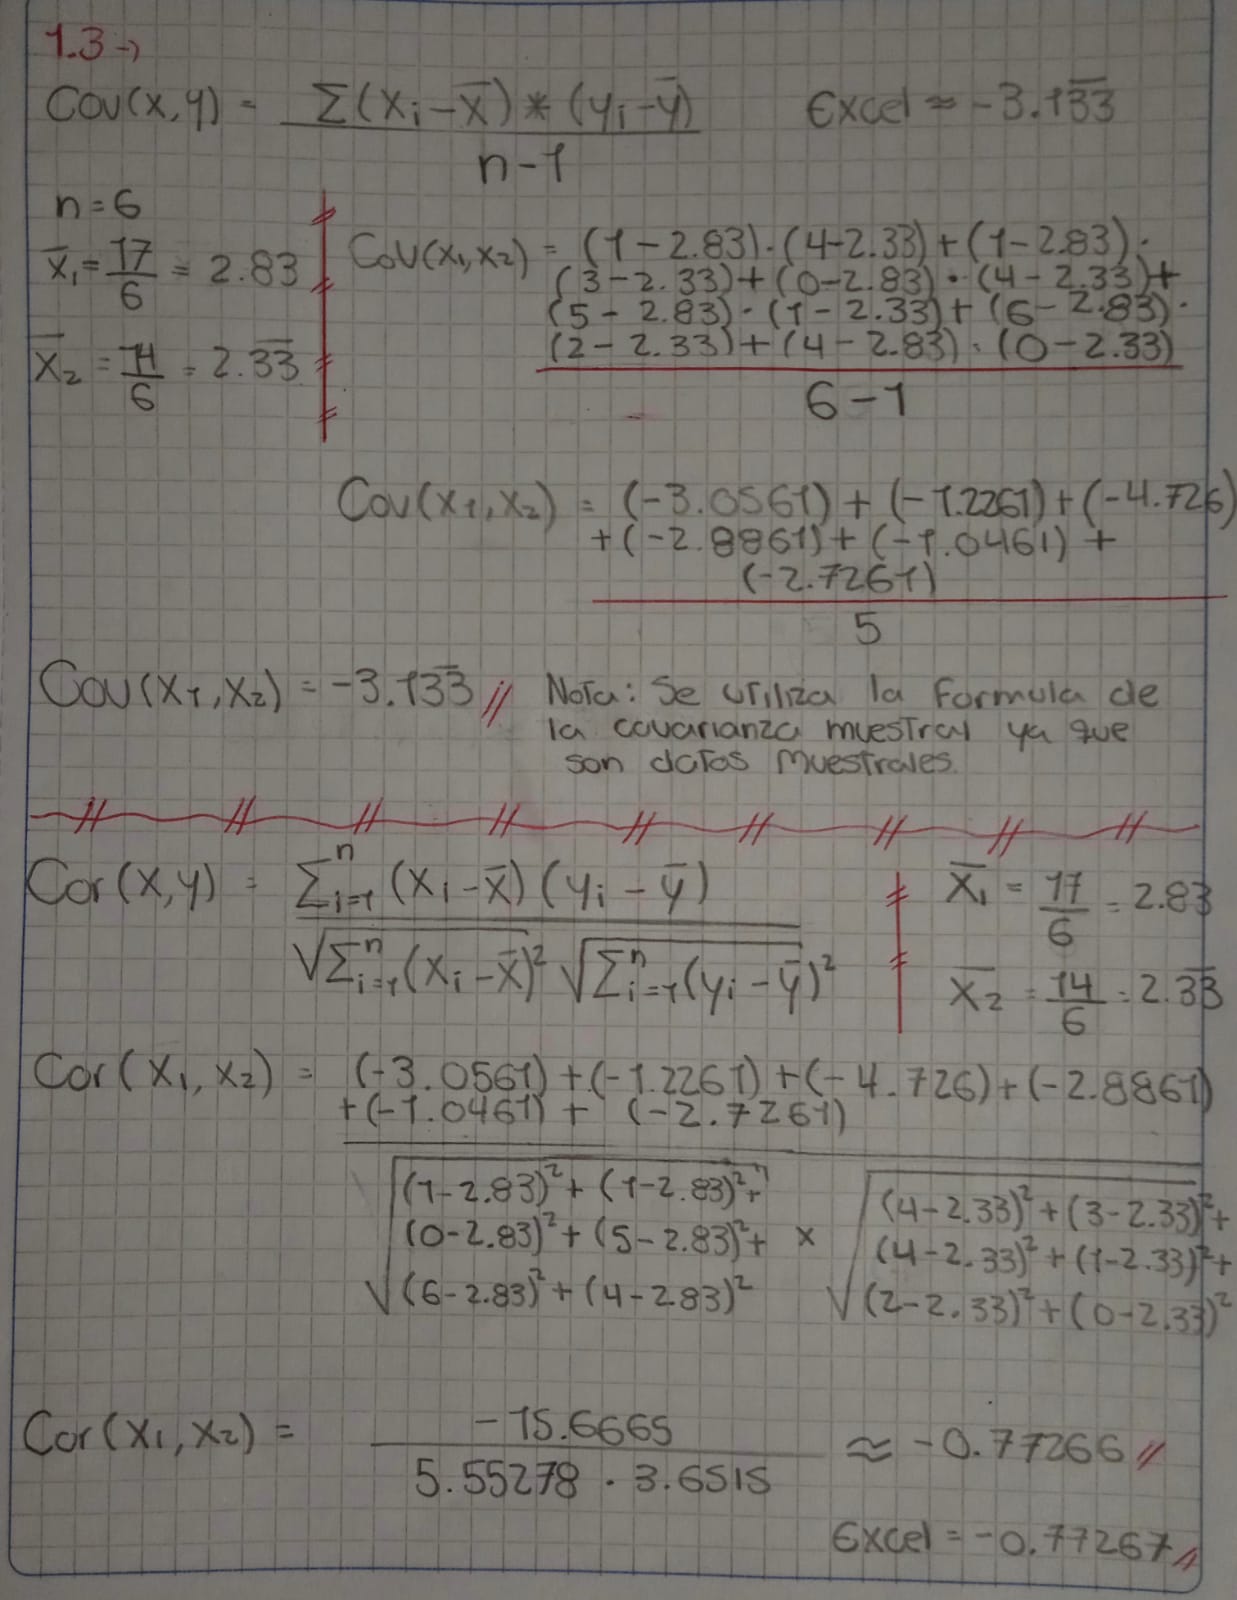 1.3→
Cov(x,y) = Σ(xᵢ-x̄)*(yᵢ-ȳ) / n-1    Excel ≈ -3.13̅3̅
n=6
x̄₁ = 17/6 = 2.83
x̄₂ = 14/6 = 2.3̅3̅
Cov(x₁,x₂) = (1-2.83)·(4-2.33)+(1-2.83)·
(3-2.33)+(0-2.83)·(4-2.33)+
(5-2.83)·(1-2.33)+(6-2.83)·
(2-2.33)+(4-2.83)·(0-2.33)
6-1
Cov(x₁,x₂) = (-3.0561)+(-1.2261)+(-4.726)
+(-2.8861)+(-1.0461)+
(-2.7261)
5
Cov(x₁,x₂) = -3.13̅3̅ //
Nota: Se utiliza la formula de
la covarianza muestral ya que
son datos muestrales.
Cor(x,y) = Σⁿᵢ₌₁(xᵢ-x̄)(yᵢ-ȳ) / √Σⁿᵢ₌₁(xᵢ-x̄)² √Σⁿᵢ₌₁(yᵢ-ȳ)²
x̄₁ = 17/6 = 2.83
x̄₂ = 14/6 = 2.3̅3̅
Cor(x₁,x₂) = (-3.0561)+(-1.2261)+(-4.726)+(-2.8861)
+(-1.0461)+(-2.7261)
√(1-2.83)²+(1-2.83)²+
(0-2.83)²+(5-2.83)²+
(6-2.83)²+(4-2.83)²
x
√(4-2.33)²+(3-2.33)²+
(4-2.33)²+(1-2.33)²+
(2-2.33)²+(0-2.33)²
Cor(x₁,x₂) = -15.6665 / 5.55278 · 3.6515 ≈ -0.77266 //
Excel = -0.77267 //